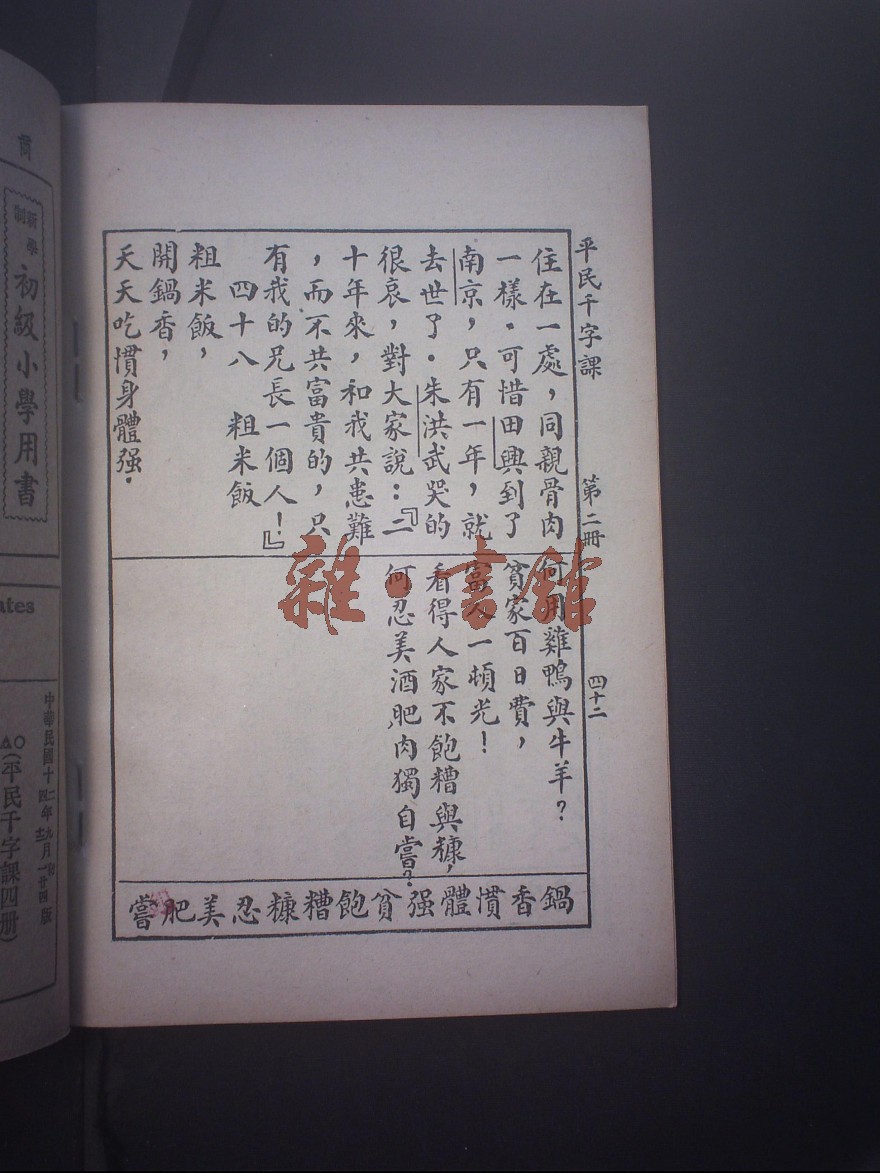 平民千字課
第二冊
四十二
住在一處，同親骨肉
一樣．可惜田興到了
南京，只有一年，就
去世了．朱洪武哭的
很哀，對大家說：『二
十年來，和我共患難
，而不共富貴的，只
有我的兄長一個人！』
四十八 粗米飯
粗米飯，
開鍋香，
天天吃慣身體强．
何用雞鴨與牛羊？
貧家百日費，
富人一頓光！
看得人家不飽糟與糠，
何忍美酒肥肉獨自嘗？
鍋香慣體强貧飽糟糠忍美肥嘗
雜·書館
新學制
初級小學用書
ates
(平民千字課四册)